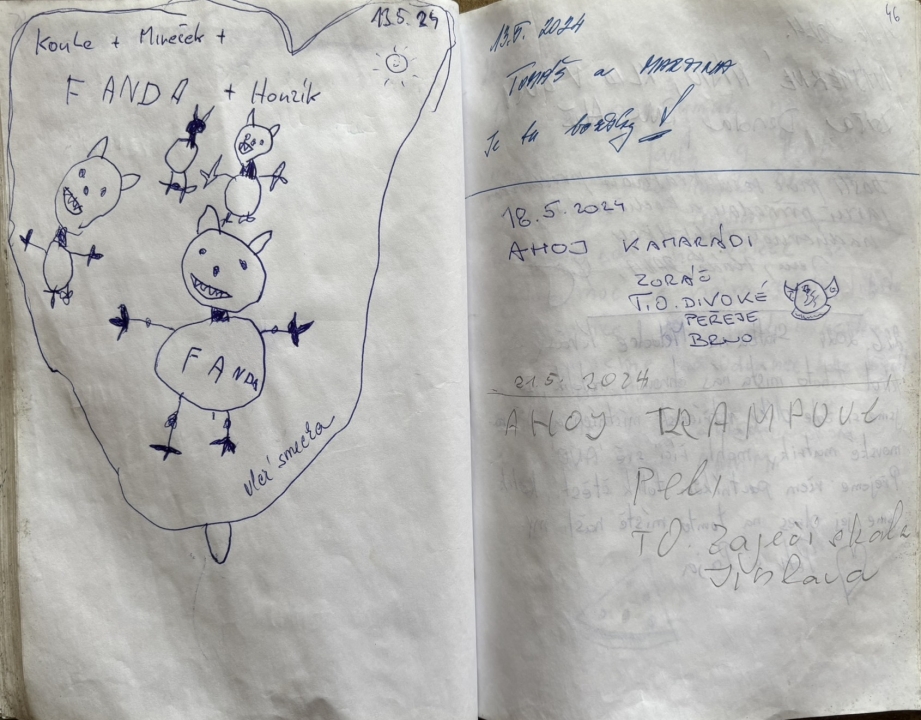 13.5. 24
+ Mireček +
FANDA + Honzík
FANDA
vlčí smečka
46
13.5. 2024
TOMÁŠ a MARTINA
Je tu
18.5.2024
AHOJ KAMARÁDI
ZORÁŠ
T.O. DIVOKÉ
PEŘEJE
BRNO
21.5. 2024
AHOJ TRAMPOVÉ
TO. Zaječí skála
Jihlava